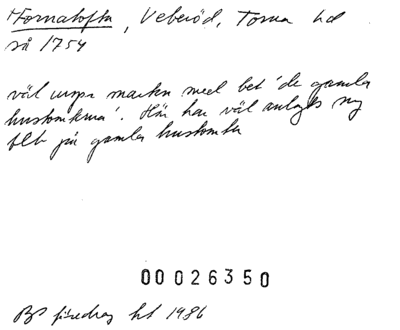 Fornatofta, Veberöd, Torna hd
så 1754
väl urspr marken med bet 'de gamla
hustomterna'. Här har väl anlagts ny
beb på gamla hustomter
00026350
föredrag ht 1986